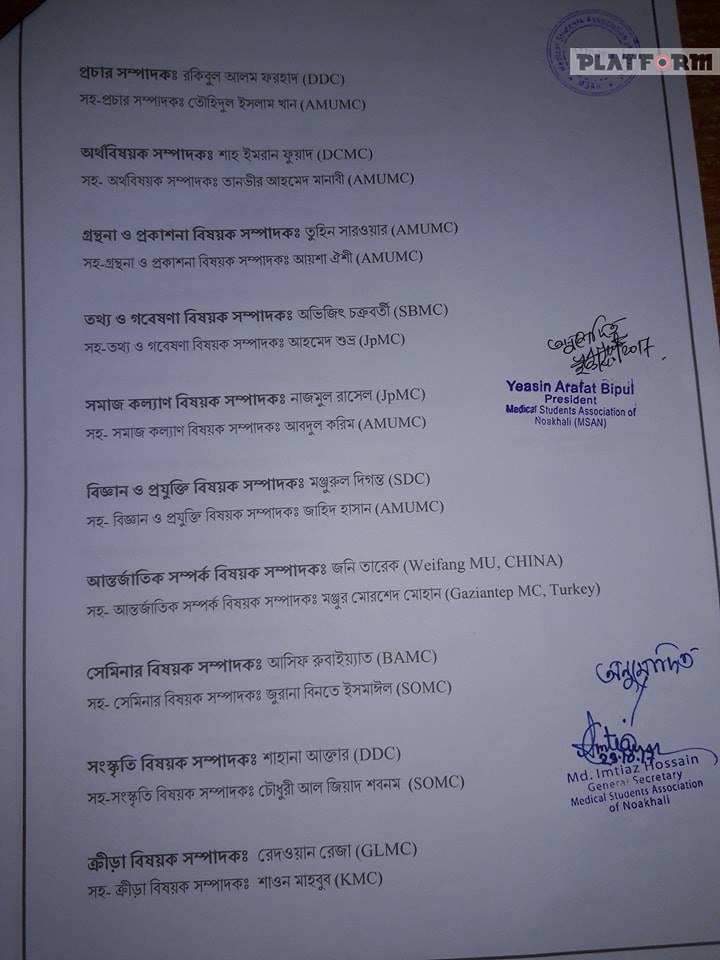 PLATFORM
প্রচার সম্পাদকঃ রকিবুল আলম ফরহাদ (DDC)
সহ-প্রচার সম্পাদকঃ তৌহিদুল ইসলাম খান (AMUMC)
অর্থবিষয়ক সম্পাদকঃ শাহ ইমরান ফুয়াদ (DCMC)
সহ- অর্থবিষয়ক সম্পাদকঃ তানভীর আহমেদ মানাবী (AMUMC)
গ্রন্থনা ও প্রকাশনা বিষয়ক সম্পাদকঃ তুহিন সারওয়ার (AMUMC)
সহ-গ্রন্থনা ও প্রকাশনা বিষয়ক সম্পাদকঃ আয়শা ঐশী (AMUMC)
তথ্য ও গবেষণা বিষয়ক সম্পাদকঃ অভিজিৎ চক্রবর্তী (SBMC)
সহ-তথ্য ও গবেষণা বিষয়ক সম্পাদকঃ আহমেদ শুভ্র (JpMC)
2017
Yeasin Arafat Bipul
President
Medical Students Association of
Noakhali (MSAN)
সমাজ কল্যাণ বিষয়ক সম্পাদকঃ নাজমুল রাসেল (JpMC)
সহ- সমাজ কল্যাণ বিষয়ক সম্পাদকঃ আবদুল করিম (AMUMC)
বিজ্ঞান ও প্রযুক্তি বিষয়ক সম্পাদকঃ মঞ্জুরুল দিগন্ত (SDC)
সহ- বিজ্ঞান ও প্রযুক্তি বিষয়ক সম্পাদকঃ জাহিদ হাসান (AMUMC)
আন্তর্জাতিক সম্পর্ক বিষয়ক সম্পাদকঃ জনি তারেক (Weifang MU, CHINA)
সহ- আন্তর্জাতিক সম্পর্ক বিষয়ক সম্পাদকঃ মঞ্জুর মোরশেদ মোহান (Gaziantep MC, Turkey)
সেমিনার বিষয়ক সম্পাদকঃ আসিফ রুবাইয়্যাত (BAMC)
সহ- সেমিনার বিষয়ক সম্পাদকঃ জুরানা বিনতে ইসমাঈল (SOMC)
অনুমোদিত
Imtiaz
29.10.17
Md. Imtiaz Hossain
General Secretary
Medical Students Association
of Noakhali
সংস্কৃতি বিষয়ক সম্পাদকঃ শাহানা আক্তার (DDC)
সহ-সংস্কৃতি বিষয়ক সম্পাদকঃ চৌধুরী আল জিয়াদ শবনম (SOMC)
ক্রীড়া বিষয়ক সম্পাদকঃ রেদওয়ান রেজা (GLMC)
সহ- ক্রীড়া বিষয়ক সম্পাদকঃ শাওন মাহবুব (KMC)